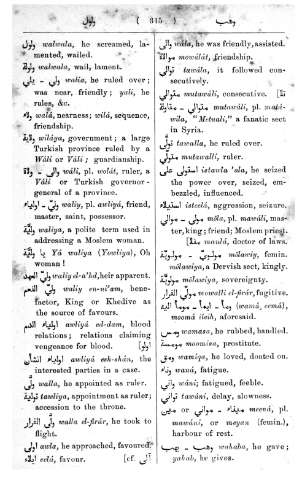 ولول ( 315 ) وهب
ولول walwala, he screamed, la-
mented, wailed.
ولولة walwala, wail, lament.
ولى — يلي walia, he ruled over;
was near, friendly; yali, he
rules, &c.
ولاء walá, nearness; wilá, sequence,
friendship.
ولاية wiláya, government; a large
Turkish province ruled by a
Wáli or Váli; guardianship.
والي — ولاة wáli, pl. wolát, ruler, a
Váli or Turkish governor-
general of a province.
ولي — اولياء waliy, pl. awliyá, friend,
master, saint, possessor.
ولية waliya, a polite term used in
addressing a Moslem woman.
يا ولية Yá waliya (Yowliya), Oh
woman!
ولي العهد waliy el-a'hd, heir apparent.
ولي النعم waliy en-ni'am, bene-
factor, King or Khedive as
the source of favours.
اولياء الدم awliyá ed-dam, blood
relations; relations claiming
vengeance for blood.
اولياء الشأن awliyá esh-shán, the
interested parties in a case.
ولى walla, he appointed as ruler.
تولية tawliya, appointment as ruler;
accession to the throne.
ولى الفرار walla el-firár, he took to
flight.
اولى awla, he approached, favoured.
ايلاء eelá, favour. [cf. آلى
والى wála, he was friendly, assisted.
موالاة mowálát, friendship.
توالى tawála, it followed con-
secutively.
متوالي mutawáli, consecutive.
متوالي — متاولة mutawáli, pl. matá-
wila, "Metuali," a fanatic sect
in Syria.
تولى tawalla, he ruled over.
متولي mutawalli, ruler.
استولى على istawla 'ala, he seized
the power over, seized, em-
bezzled, influenced.
استيلاء isteelá, aggression, seizure.
مولى — موالي móla, pl. mawáli, mas-
ter, king; friend; Moslem priest.
doctor of laws.
مولوي — مولوية mólawiy, femin.
mólawiya, a Dervish sect, kingly.
مولوية mólawiya, sovereignty.
مولي الفرار mowalli el-firár, fugitive.
ومس wamasa, he rubbed, handled.
مومسة moomisa, prostitute.
ومق wamiqa, he loved, doted on.
وناء waná, fatigue.
واني wáni, fatigued, feeble.
تواني tawáni, delay, slowness.
ميناء — مواني meená, pl.
mawáni, or meyan (femin.),
harbour of rest.
وهب — يهب wahaba, he gave;
yahab, he gives.